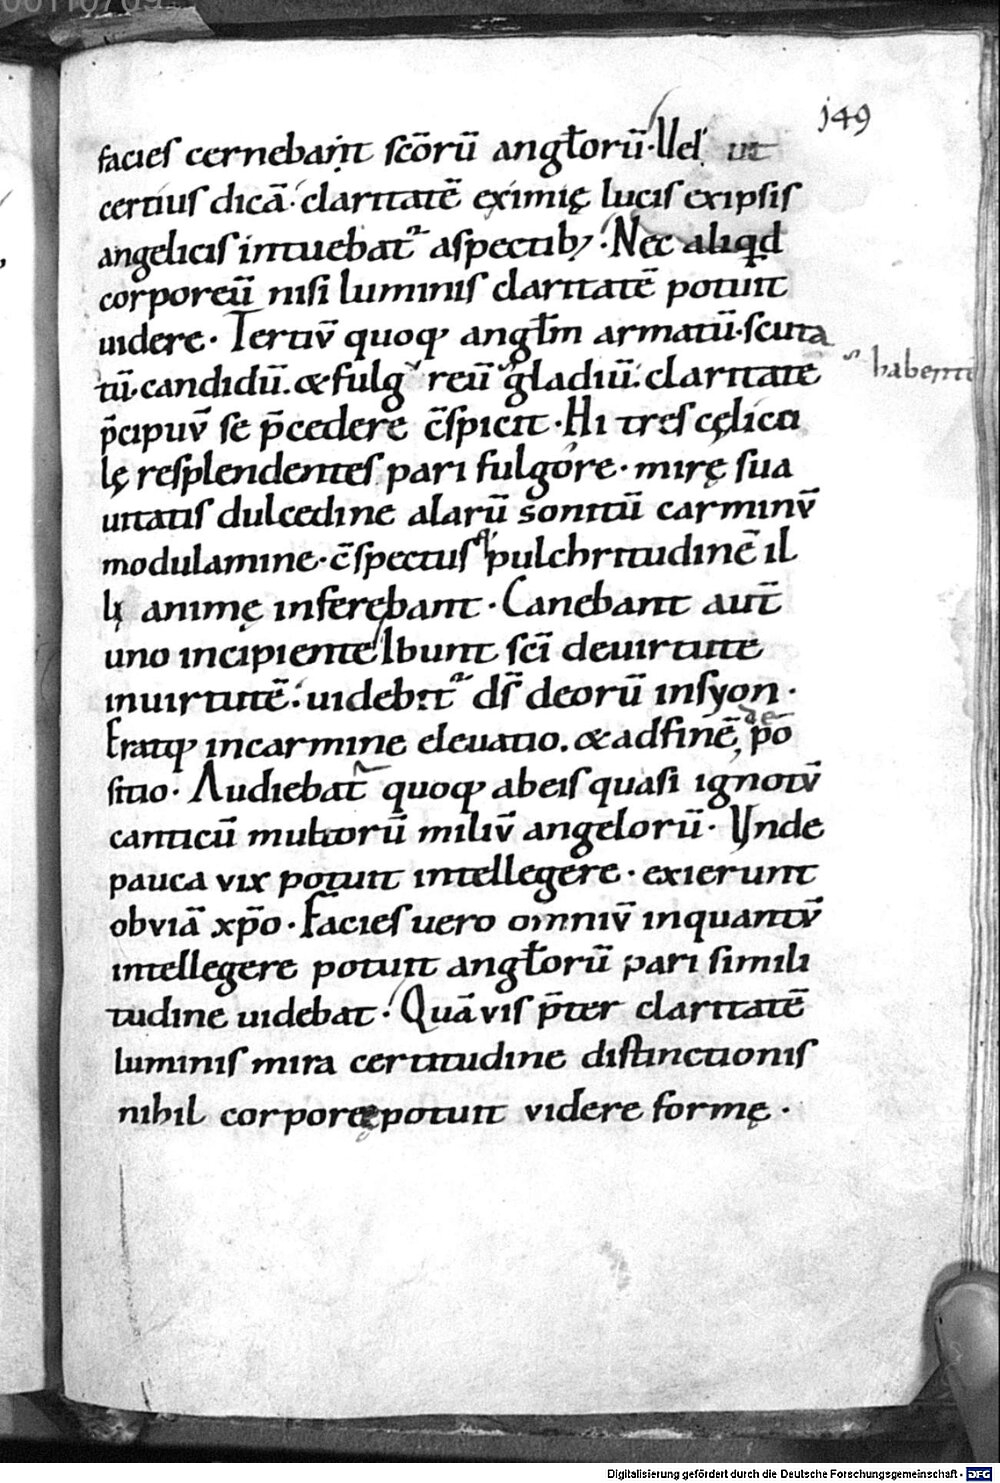 149
facies cernebant scōrū angłorū· Vel ut
certius dicā· claritatē eximię lucis exipsis
angelicis intuebat᷑ aspectib;· Nec aliqd
corporeū nisi luminis claritatē potuit
uidere· Tertiū quoq; angłm armatū·scuta
tū·candidū.&fulgᵒreū gladiū·claritate
habentē
p̄cipuū se p̄cedere c̄spicit· Hi tres cęlicu
lę resplendentes pari fulgore· mirę sua
uitatis dulcedine alarū sonitū carminū
modulamine·c̄spectusq; pulchritudinē il
lę animę inferebant· Canebant aut̄
uno incipiente Ibunt sc̄i deuirtute
inuirtutē· uidebit᷑ ds̄ deorū insyon·
Eratq; incarmine eleuatio.&adfinē, depō
sitio· Audiebat quoq; abeis quasi ignotū
canticū multorū miliū angelorū· Vnde
pauca vix potuit intellegere· exierunt
obviā xp̄o· Facies uero omniū inquantū
intellegere potuit angłorū pari simili
tudine uidebat· Quāvis p̄ter claritatē
luminis mira certitudine distinctionis
nihil corporeę potuit videre formę·
Digitalisierung gefördert durch die Deutsche Forschungsgemeinschaft - DFG